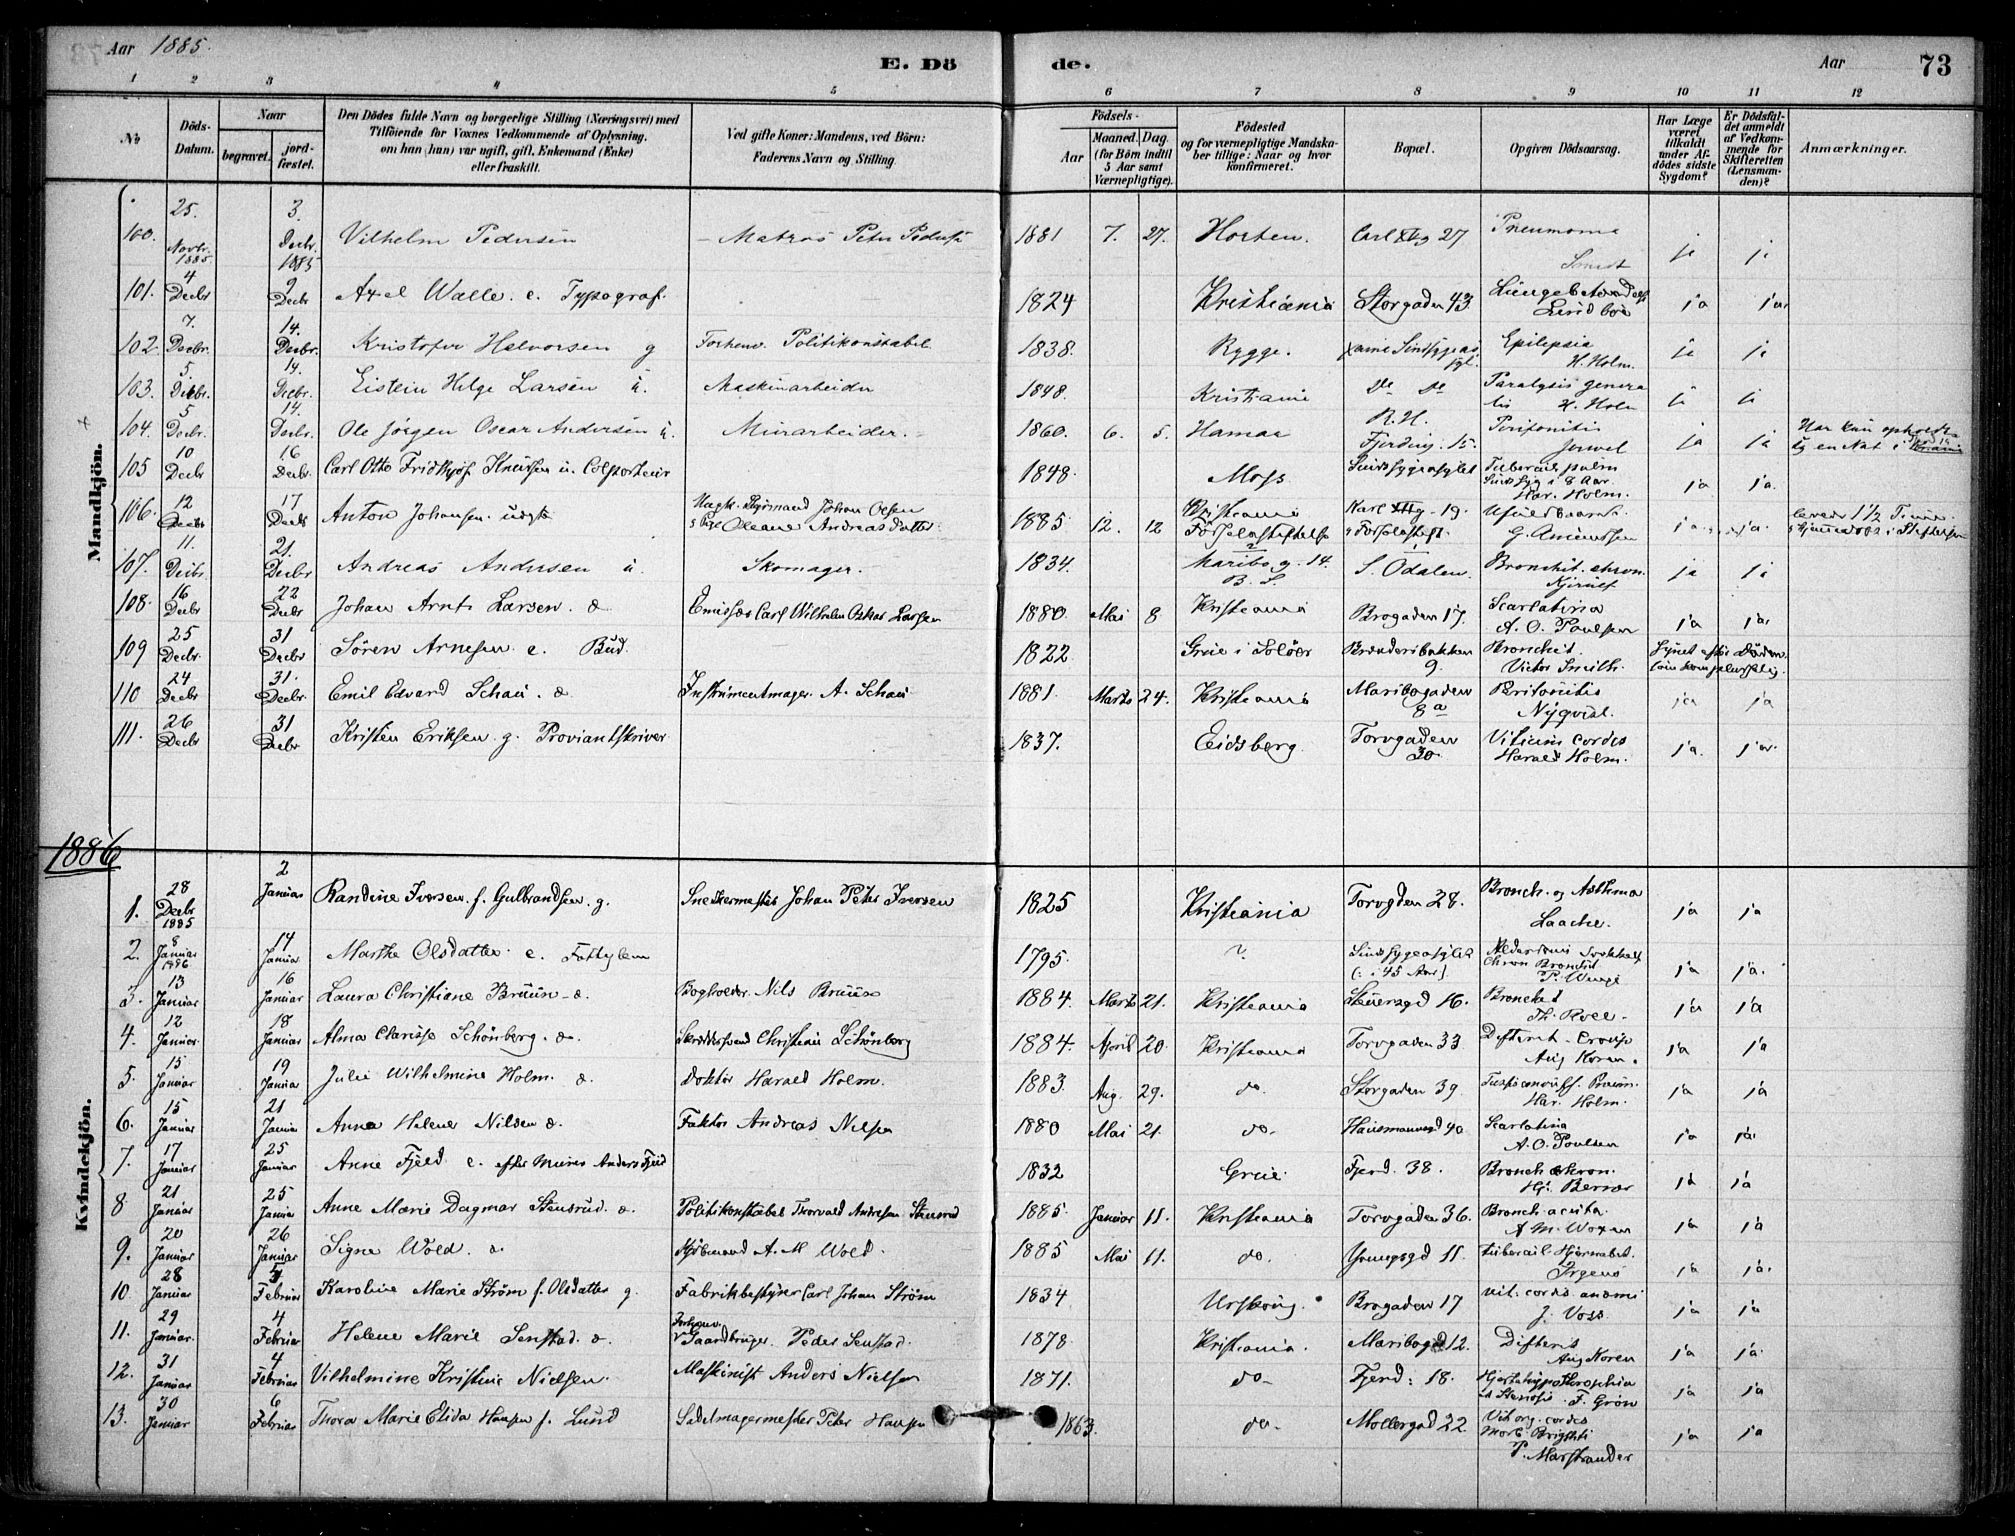 Aar 1885.
E. Dö de.
Aar 73
1 2 3 4 5 6 7 8 9 10 11 12
No
Döds-Datum.
Naar
begravet.
jord-fæstet.
Den Dödes fulde Navn og borgerlige Stilling (Næringsvei) med
Tilföiende for Voxnes Vedkommende af Oplysning,
om han (hun) var ugift, gift, Enkemand (Enke)
eller fraskilt.
Ved gifte Koner: Mandens, ved Börn:
Faderens Navn og Stilling.
Födsels-
Aar
Maaned. Dag.
(for Börn indtil
5 Aar samt
Værnepligtige).
Födested
og for værnepligtige Mandska-
ber tillige: Naar og hvor
konfirmeret.
Bopæl.
Opgiven Dödsaarsag.
Har Læge
været
tilkaldt
under Af-
dödes sidste
Sygdom?
Er Dödsfal-
det anmeldt
af Vedkom-
mende for
Skifteretten
(Lensman-
den)?
Anmærkninger.
Mandkjön.
100. 25. Novbr. 1885. 3. Decbr. 1885 Vilhelm Pedersen Matros Peter 1881 7. 27. Horten. Carl 27 Pneumonia ja ja
101. 4 Decbr 9 Decbr Axel Walle. e. Typograf. 1824 Kristiania Storgaden 43 ja ja
102 7. Decbr. 14. Decbr. Kristofer Halvorsen g Forhenv. Politikonstabel 1838. Rygge. Epilepsia H. Holm. ja ja
103. 5. Decbr. 14. Decbr. Eistein Helge Larsen u. Maskinarbeider 1848. Kristiania Do Do Paralysis genera lis H. Holm ja ja
104. 5 Decbr. 14 Decbr. Ole Jörgen Oscar Andersen u. Murarbeider. 1860. 6. 5. Hamar R. H. Fjerding. 15. Peritonitis ja ja Har kun opholdt sig en Nat i
105 10 Decbr 16 Decbr. Carl Otto Fridthjof Knutsen u. Colporteur 1848. Moss Sindssygeasylet Tubercul. pulm Sindssyg i 8 Aar. Har. Holm. ja ja.
106. 12 Decbr 17 Decbr Anton Johansen. uægte Styrmand Johan Olsen Oleane Andreasdatter. 1885. 12. 12 Kristiania Födselsstiftelse Karl - 19. Ufuldbaaret. G. Amundsen ja ja. levede 1½ Time.
107. 11. Decbr. 21. Decbr Andreas Andersen u Skomager. 1834. Maribog. 14. B. S. S. Odalen. Bronchit. chron. Kjerulf ja ja
108. 16 Decbr 22 Decbr Johan Arnt Larsen. d Emissær Carl Wilhelm Oskar Larsen 1880. Mai 8 Kristiania Brogaden 17. Scarlatina A. O. Poulsen ja ja.
109 25 Decbr. 31 Decbr Sören Arnesen e. Bud. 1822 Grue i Solöer 9. Bronchit. Victor Smith. Synet efter Döden.
110 24 Decbr 31. Decbr Emil Edvard Schau. d. Instrumentmager. A. Schau 1881. Marts 24. Kristiania Maribogaden 8 a Peritonitis Nyqvist. ja ja
111. 26 Decbr 31 Decbr Kristen Eriksen g. Proviantskriver 1837. Eidsberg. Torvgaden 30 Vitium cordis Harald Holm. ja ja.
1886
Kvindekjön.
1. 28 Decbr 1885 2 Januar Randine Iversen f. Gulbrandsen. g. Snekkermester Johan Peter Iversen 1825 Kristiania Torvgden 28. Bronch. og Asthma Laache. ja ja
2. 8 Januar 1886 14 Januar Marthe Olsdatter. e. Fattiglem 1795. ? Sindssygeasylet (: i 45 Aar) chron Bronchit P. Winge ja ja.
3. 13 Januar 16 Januar Laura Christiane Bruun - d. Bogholder Nils Bruun 1884. Marts 21. Kristiania Steensgd 16. Bronchit Th. Roll. ja ja
4. 12 Januar 18 Januar Alma Clarisse Schönberg. d. Skræddersvend Christian Schönberg 1884. April 20. Kristiania Torvgaden 33 Difterit - Croup Aug Koren. ja ja
5. 15 Januar 19 Januar Julie Wilhelmine Holm. d. Doktor Harald Holm. 1883. Aug. 29. do. Storgaden 39. Har. Holm. ja ja
6. 15 Januar 21 Januar Anna Helene Nilsen d. Faktor Andreas Nilsen 1880 Mai 21. do. Hausmannsgd 40 Scarlatina A. O. Poulsen ja ja.
7. 17 Januar 25 Januar Anne Fjeld e. efter Murer Anders Fjeld 1832 Grue. Fjerd. 38. Bronch. chron. Hj. Berner ja ja
8 21 Januar 25 Januar Anne Marie Dagmar Stensrud. d. Politikonstabel Thorvald Andresen Stensrud 1885. Januar 11. Kristiania Torvgaden 36. Bronch. acuta. A. M. Woxen ja ja
9. 20 Januar 26 Januar Signe Wold. d. Kjöbmand A. M Wold. 1885 Mai 11. do. Youngsgd 11. Irgens ja ja.
10. 28 Januar 5 Februar Karoline Marie Ström f. Olsdatter g. Fabrikbestyrer Carl Johan Ström 1834 Urskoug. Brogaden 17 vit. cordis. anæmi J. Voss ja ja
11. 29 Januar. 4 Februar Helene Marie Senstad. d. Forhenv. Gaardbruger. Peder Senstad. 1878. Kristiania. Maribogd 12. Difterit Aug Koren ja ja.
12. 31 Januar 4 Februar Vilhelmine Kristine Nielsen. Maskinist Anders Nielsen 1871. do - Fjerd: 18. Hjertehypothrophia Stenose. F. Grön ja ja
13. 30 Januar 6 Februar Thora Marie Elida Hansen f. Lund Sadelmagermester Peter Hansen 1863. do - Mollergad 22. Vit. org. cordis Morb. Brigthti P. Marstrander ja ja